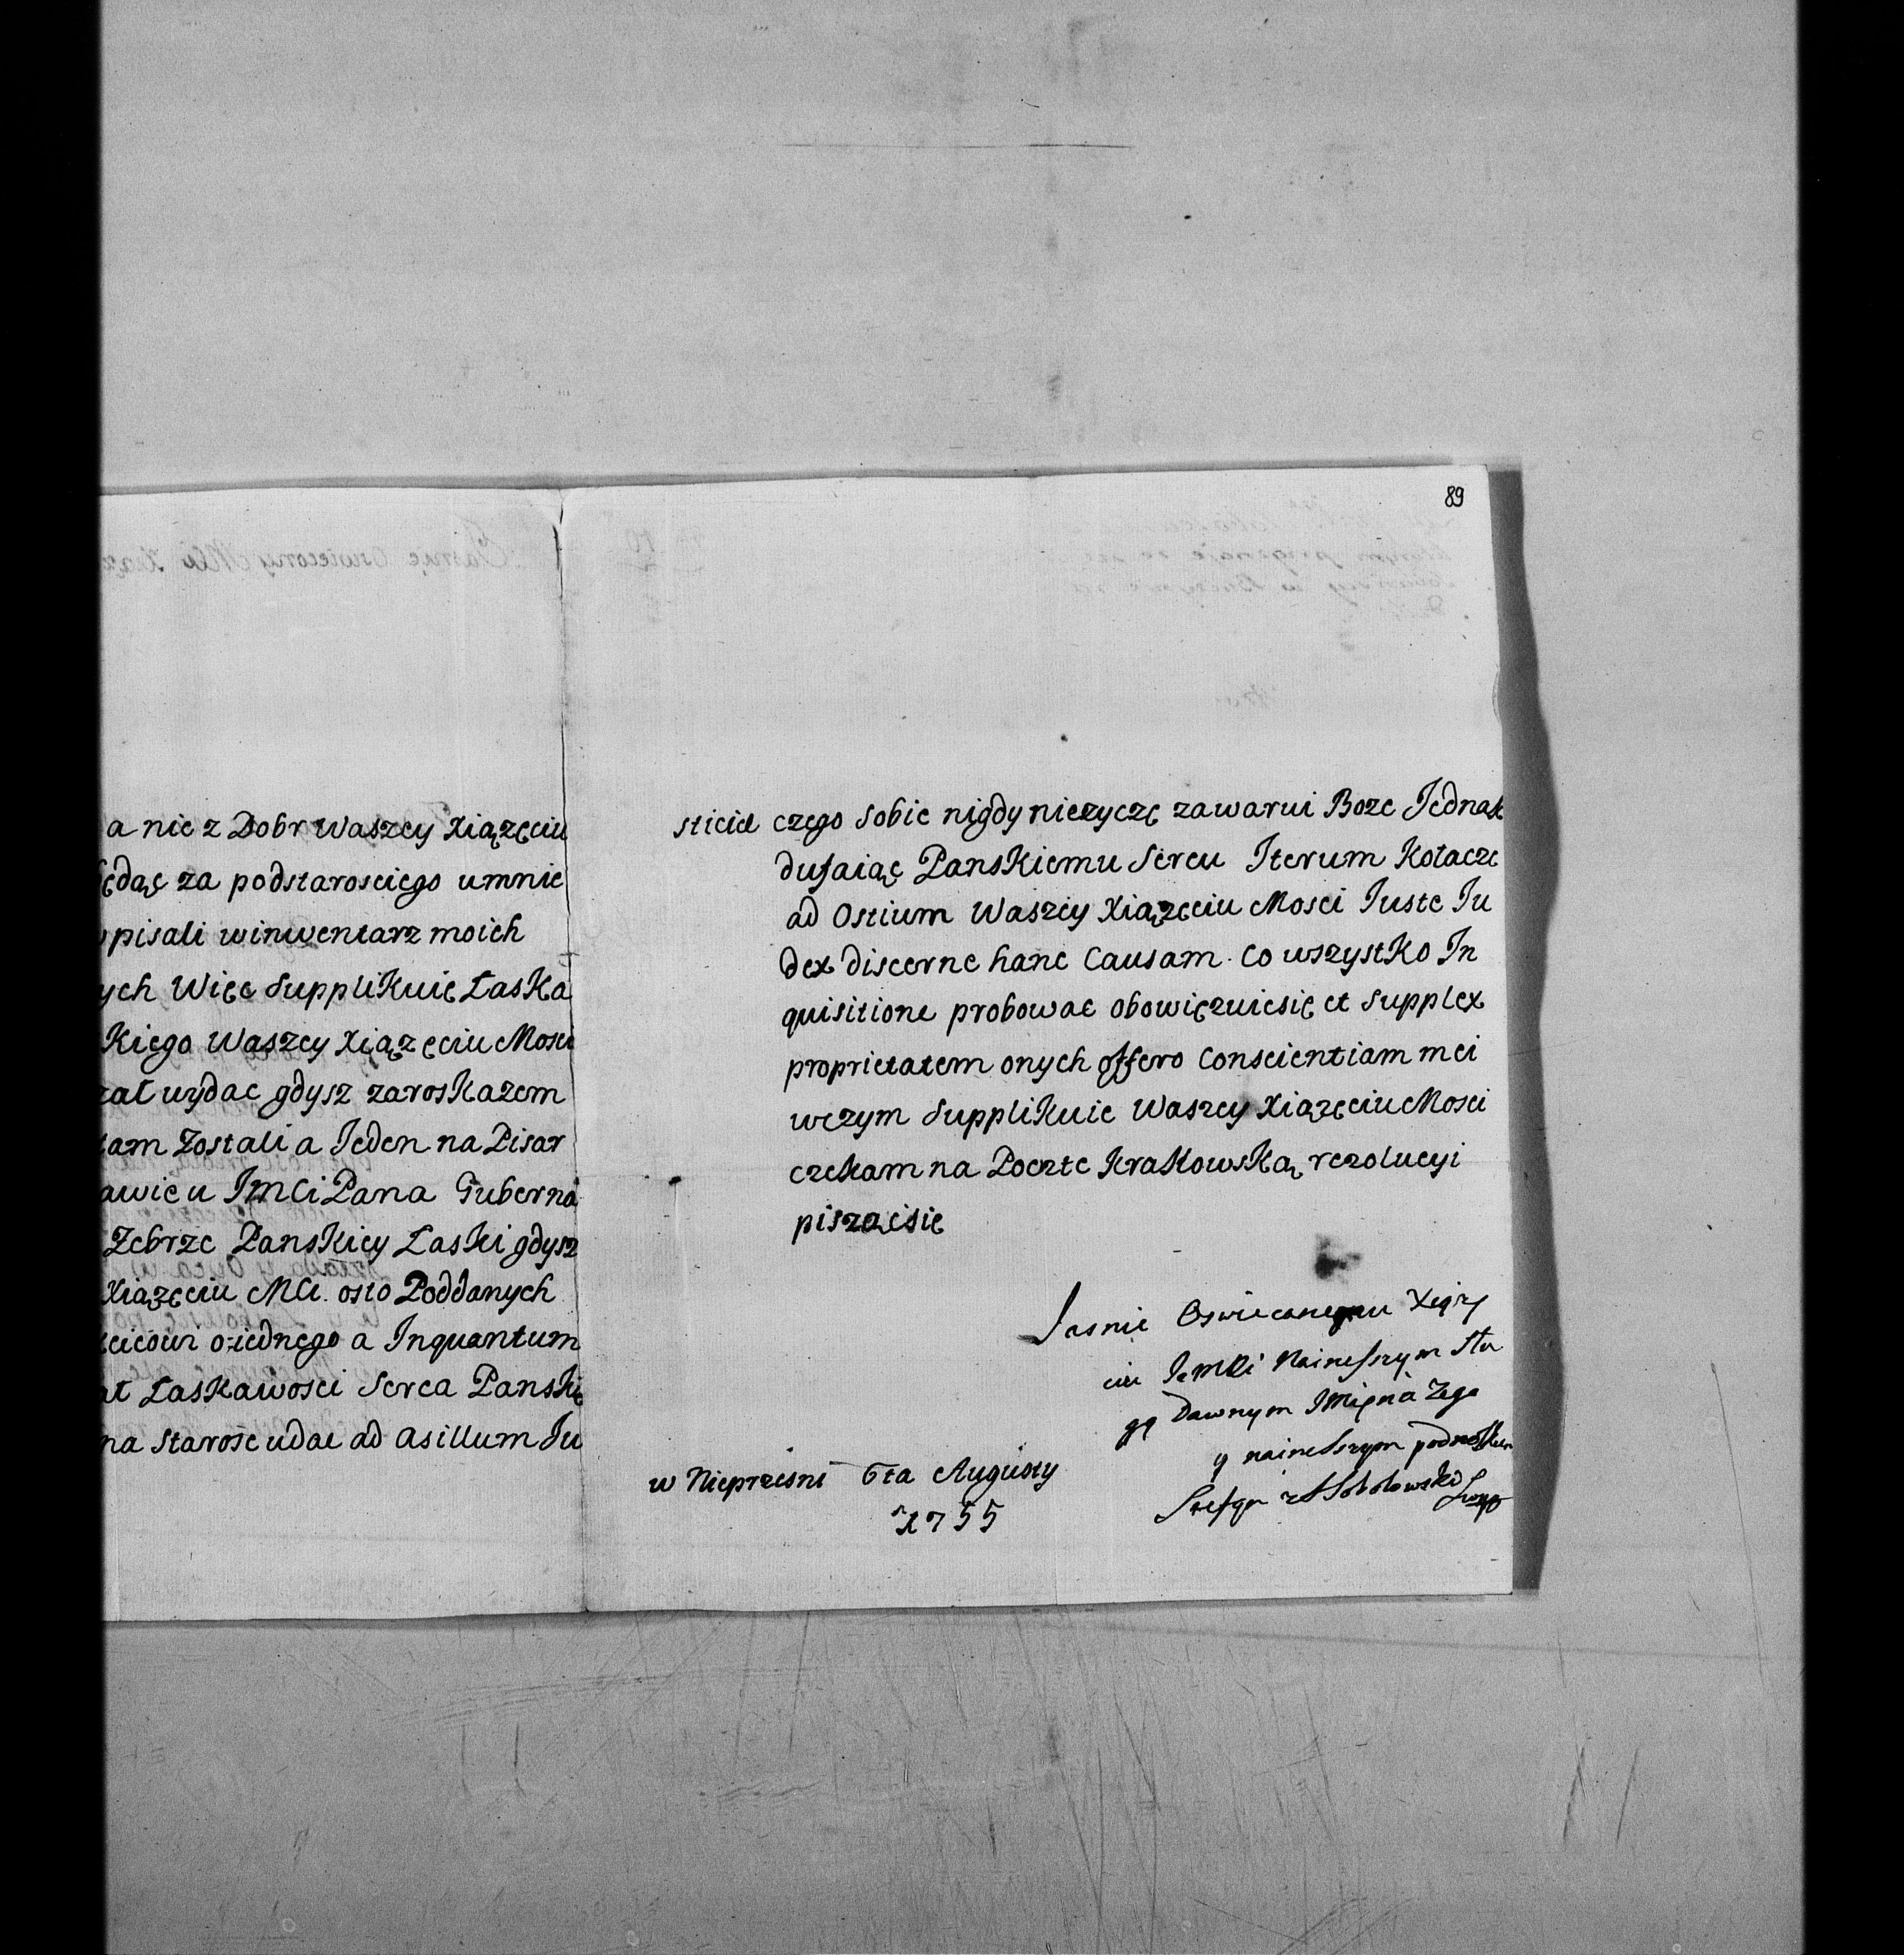 a nic z Dobr Waszey Xiązęciu
będąc za podstarosciego umnie
pisali winwentarz moich
ych Więc Supplikuię Laska
Kiego Waszey Xiązęciu Mosci
zał wydac gdysz zaroskazem
tam Zostali a Jeden na Pisar
awie u JMCi Pana Guberna
Zebrze Panskiey Laski gdysz
Xiązęciu MCi. osto Poddanych
oiednego a Inquantum
at Laskawosci Serca Panski
na Starosc udac ad asillum Ju
89
sticiae czego Sobie nigdy niezyczę zawarui Boze Jednak
dufaiąc Panskiemu Sercu Iterum Kołacze
ad Ostium Waszey Xiązęciu Mosci Juste Ju
dex discerne hanc Causam. Co wszystko In
quisitione probowac obowięzuiesię et Supplex
proprietatem onych offero Conscientiam mei
wczym Supplikuie Waszey Xiązęciu Mosci
czekam na Poczte Krakowską rezolucyi
piszącsię
Jasnie Oswieconemu Xiązę
ciu JeMCi Nainiszszym Słu
gą Dawnym Imięnia Zego
y nainiszszym podnoszkiem
Stefan Sokołowski
w Nieprzesni 6ta Augusty
1755